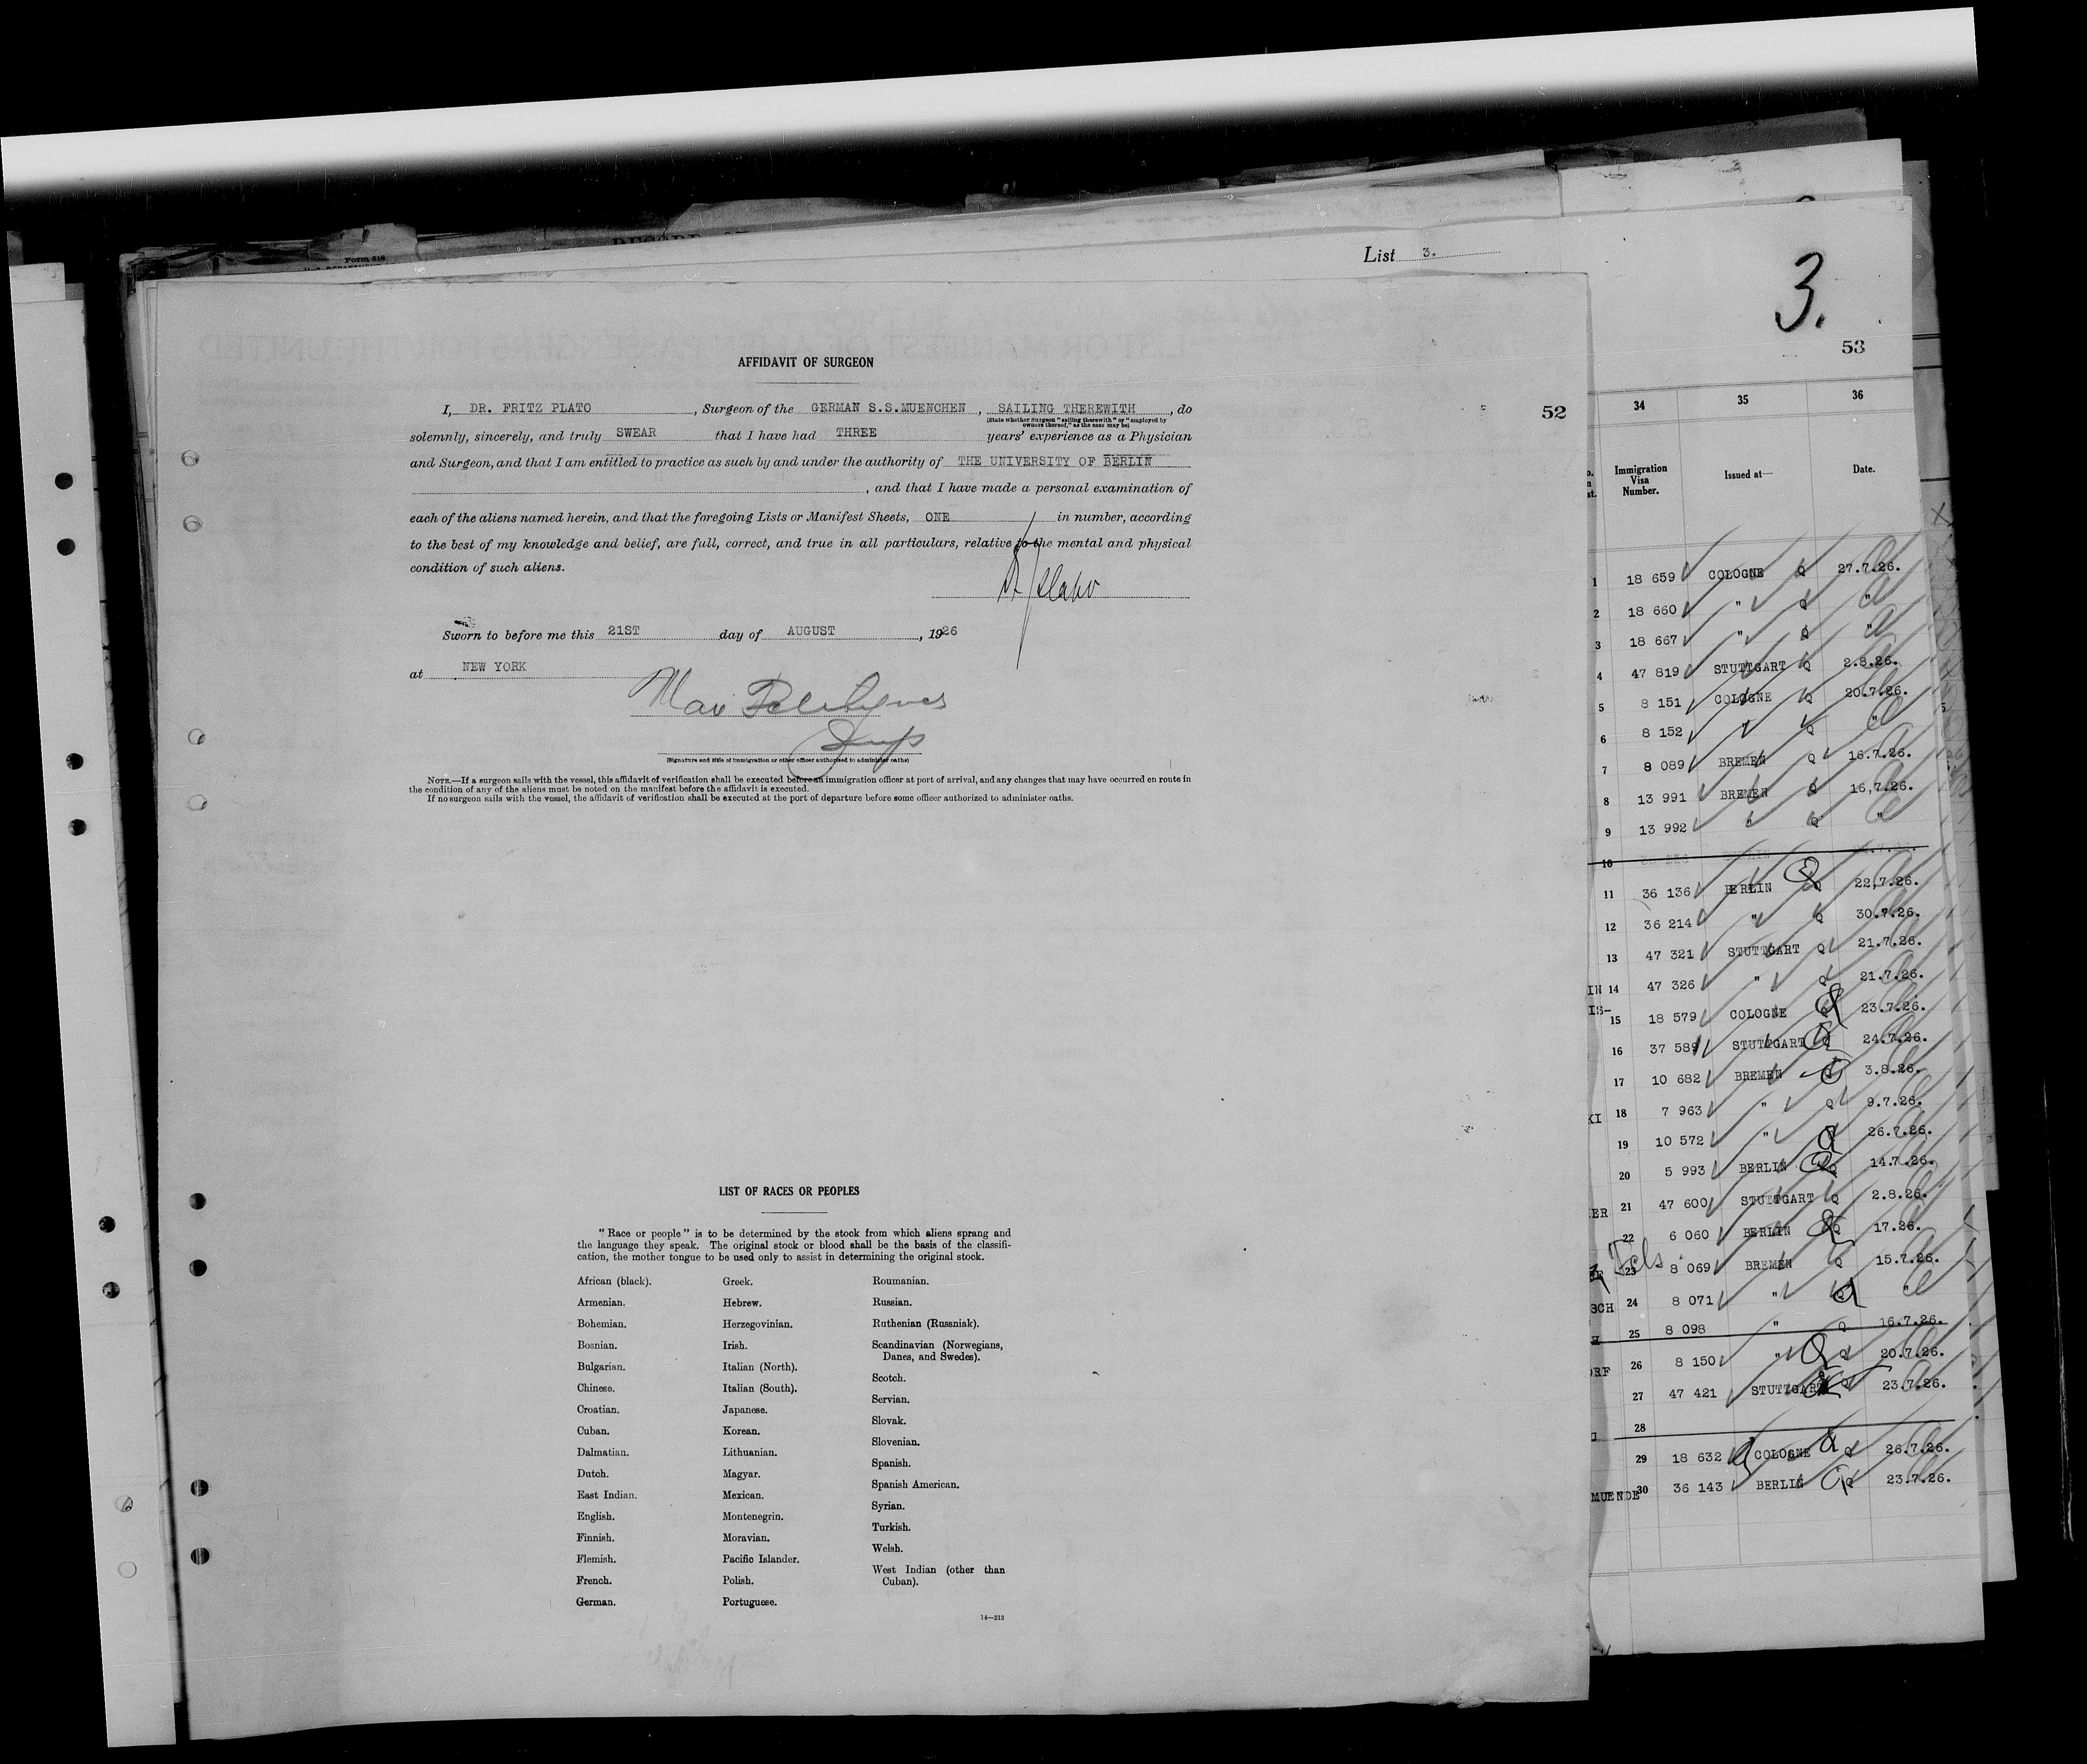 Form 218
List 3.
3.
53
AFFIDAVIT OF SURGEON
I, DR. FRITZ PLATO, Surgeon of the GERMAN S.S.MUENCHEN, SAILING THEREWITH, do
(State whether Surgeon "sailing therewith" or "employed by owners thereof," as the case may be)
52
solemnly, sincerely, and truly SWEAR that I have had THREE years' experience as a Physician
and Surgeon, and that I am entitled to practice as such by and under the authority of THE UNIVERSITY OF BERLIN
, and that I have made a personal examination of
each of the aliens named herein, and that the foregoing Lists or Manifest Sheets, ONE in number, according
to the best of my knowledge and belief, are full, correct, and true in all particulars, relative to the mental and physical
condition of such aliens.
Dr Plato
Sworn to before me this 21ST day of AUGUST, 1926
at NEW YORK
Max
Insp
(Signature and title of immigration or other officer authorized to administer oaths)
NOTE.—If a surgeon sails with the vessel, this affidavit of verification shall be executed before an immigration officer at port of arrival, and any changes that may have occurred en route in
the condition of any of the aliens must be noted on the manifest before the affidavit is executed.
If no surgeon sails with the vessel, the affidavit of verification shall be executed at the port of departure before some officer authorized to administer oaths.
LIST OF RACES OR PEOPLES
"Race or people" is to be determined by the stock from which aliens sprang and
the language they speak. The original stock or blood shall be the basis of the classifi-
cation, the mother tongue to be used only to assist in determining the original stock.
African (black).
Armenian.
Bohemian.
Bosnian.
Bulgarian.
Chinese.
Croatian.
Cuban.
Dalmatian.
Dutch.
East Indian.
English.
Finnish.
Flemish.
French.
German.
Greek.
Hebrew.
Herzegovinian.
Irish.
Italian (North).
Italian (South).
Japanese.
Korean.
Lithuanian.
Magyar.
Mexican.
Montenegrin.
Moravian.
Pacific Islander.
Polish.
Portuguese.
Roumanian.
Russian.
Ruthenian (Russniak).
Scandinavian (Norwegians,
Danes, and Swedes).
Scotch.
Servian.
Slovak.
Slovenian.
Spanish.
Spanish American.
Syrian.
Turkish.
Welsh.
West Indian (other than
Cuban).
14—213
34 35 36
Immigration Visa Number. Issued at— Date.
1 18 659 COLOGNE Q 27.7.26.
2 18 660 " Q "
3 18 667 " Q "
4 47 819 STUTTGART Q 2.8.26.
5 8 151 COLOGNE Q 20.7.26.
6 8 152 " Q "
7 8 089 BREMEN Q 16.7.26.
8 13 991 BREMEN Q 16,7.26.
9 13 992 " Q "
10
11 36 136 BERLIN Q 22,7.26.
12 36 214 " Q 30.7.26.
13 47 321 STUTTGART Q 21.7.26.
IN 14 47 326 " Q 21.7.26.
IS- 15 18 579 COLOGNE 23.7.26.
16 37 589 STUTTGART 24.7.26.
17 10 682 BREMEN 3.8.26.
KI 18 7 963 " Q 9.7.26.
19 10 572 " 26.7.26.
20 5 993 BERLIN Q 14.7.26.
ER 21 47 600 STUTTGART Q 2.8.26.
22 6 060 BERLIN Q 17.26.
23 8 069 BREMEN Q 15.7.26.
SCH 24 8 071 " Q "
H 25 8 098 " Q 16.7.26.
ORF 26 8 150 " Q 20.7.26.
27 47 421 STUTTGART Q 23.7.26.
28
29 18 632 COLOGNE Q 26.7.26.
MUENDE 30 36 143 BERLIN Q 23.7.26.